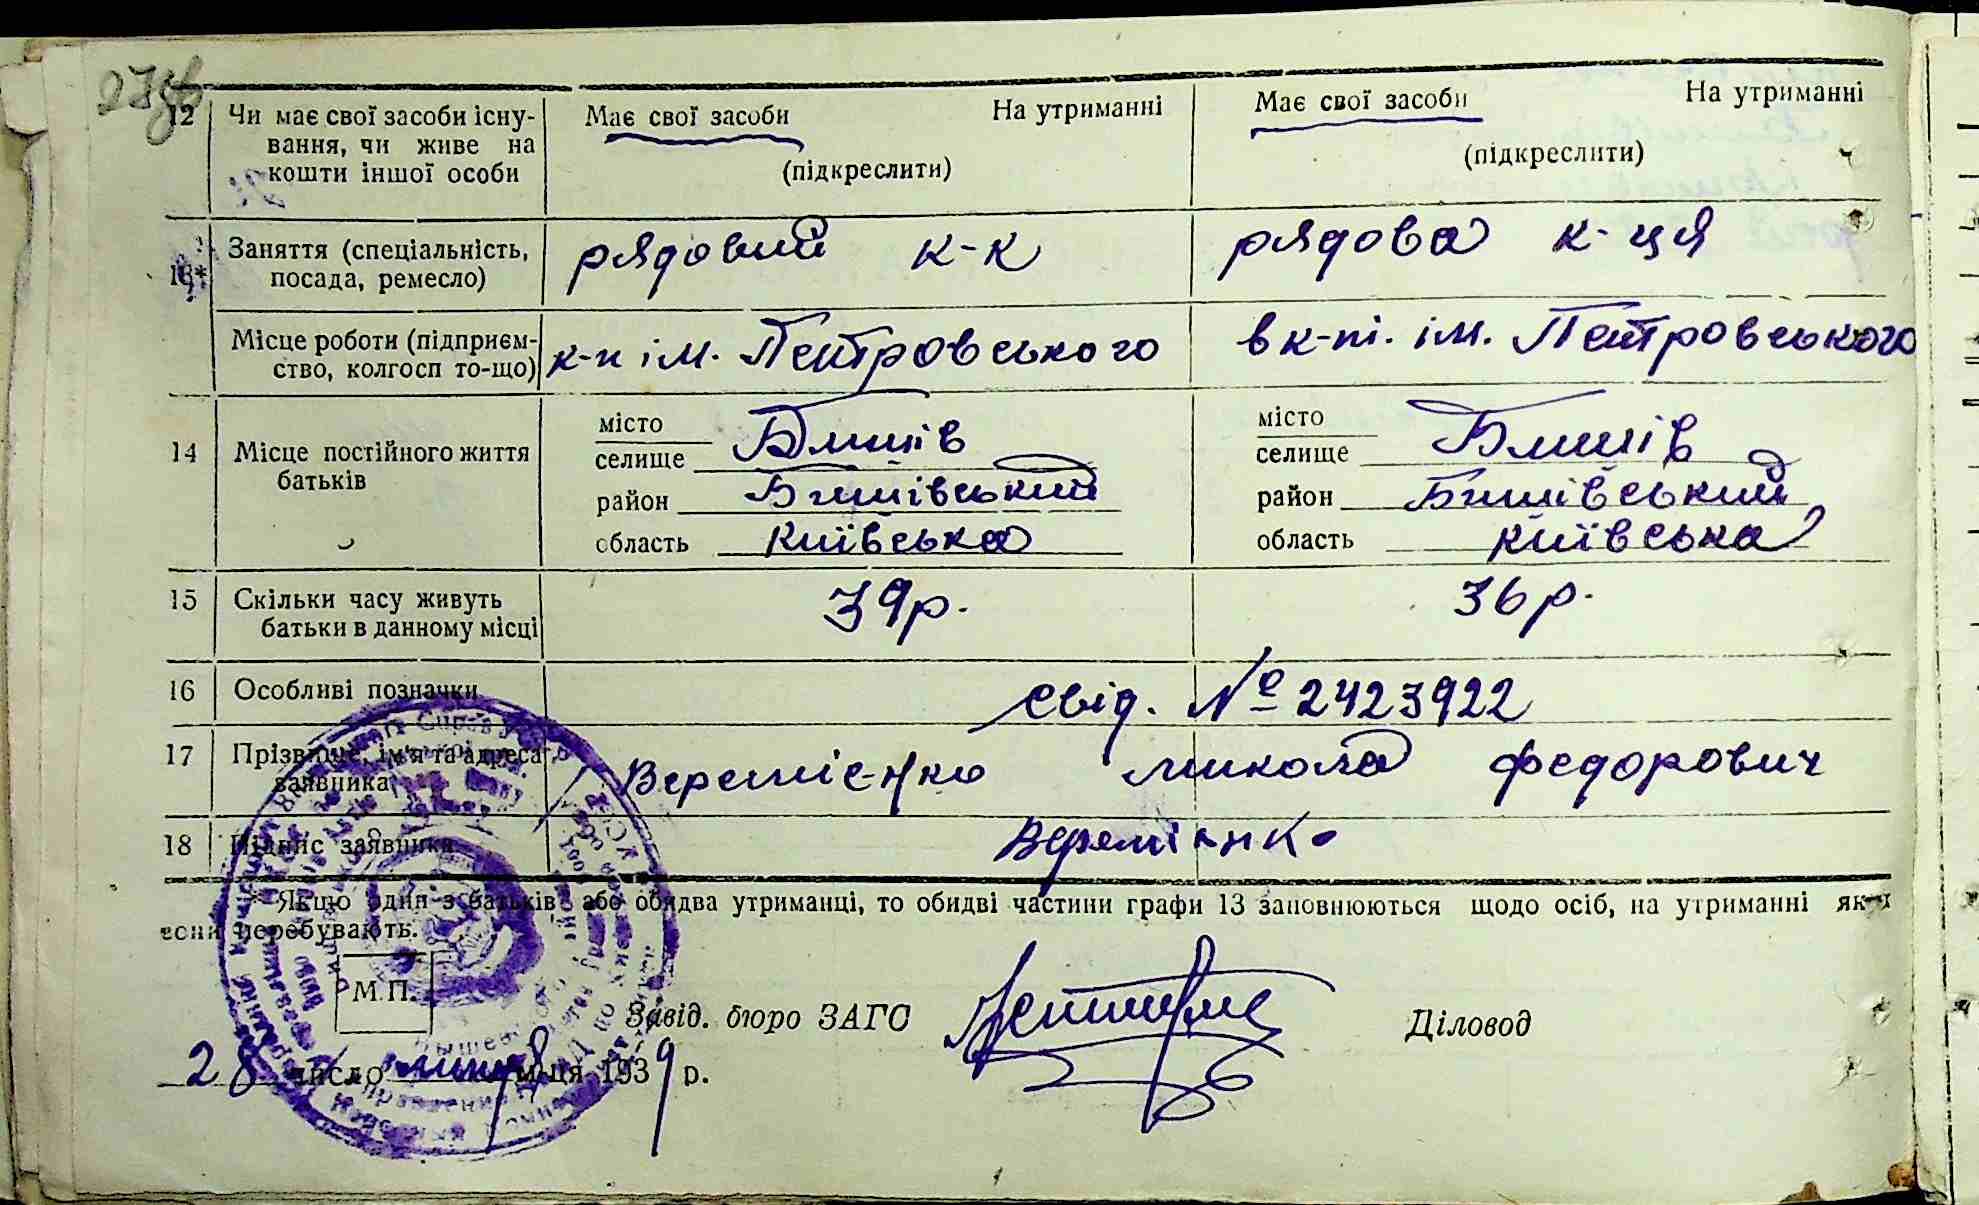 27зв
12 Чи має свої засоби існу- Має свої засоби На утриманні Має свої засоби На утриманні
вання, чи живе на (підкреслити) (підкреслити)
кошти іншої особи
13* Заняття (спеціальність, рядовий к-к рядова к-ця
посада, ремесло)
Місце роботи (підприєм- к-п ім. Петровського в к-пі. ім. Петровського
ство, колгосп то-що)
14 Місце постійного життя батьків
місто Бишів місто Бишів
селище селище
район Бишівський район Бишівський
область Київська область Київська
15 Скільки часу живуть 39р. 36р.
батьки в данному місці
16 Особливі позначки Свід. № 2423922
17 Прізвище, ім'я та адреса Веремієнко Микола Федорович
заявника
18 Підпис заявника Веремієнко
* Якщо один з батьків або обидва утриманці, то обидві частини графи 13 заповнюються щодо осіб, на утриманні яких
вони перебувають.
М.П.
Завід. бюро ЗАГС Діловод
28 число м-ця 1939 р.